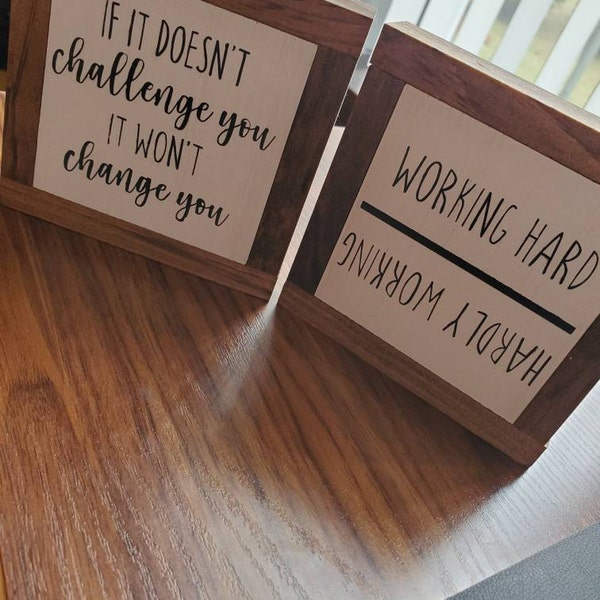 IF IT DOESN'T
challenge you
IT WON'T
change you
WORKING HARD
HARDLY WORKING